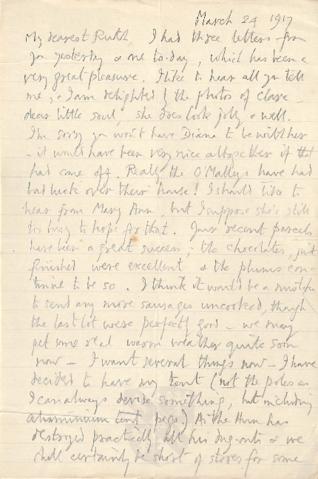 March 24 1917
My dearest Ruth, I had three letters from
you yesterday & one to-day, which has been a
very great pleasure. I like to hear all you tell
me, & I am delighted with the photos of Clare
dear little soul, she does look jolly & well.
I'm sorry you won't have Diana to be with her
- it would have been very nice altogether if that
had come off. Really the O'Malleys have had
bad luck over their house! I should like to
hear from Mary Ann, but I suppose she's still
too busy to hope for that. Your recent parcels
have been a great success; the chocolates, just
finished were excellent & the plums con-
tinue to be so. I think it would be a mistake
to send any more sausages uncooked, though
the last lot were perfectly good - we may
get some real warm weather quite soon
now - I want several things now - I have
decided to have my tent (not the poles as
I can always devise something, but including
aluminium tent pegs) As the Hun has
destroyed practically all his dug-outs & we
shall certainly be short of stores for some